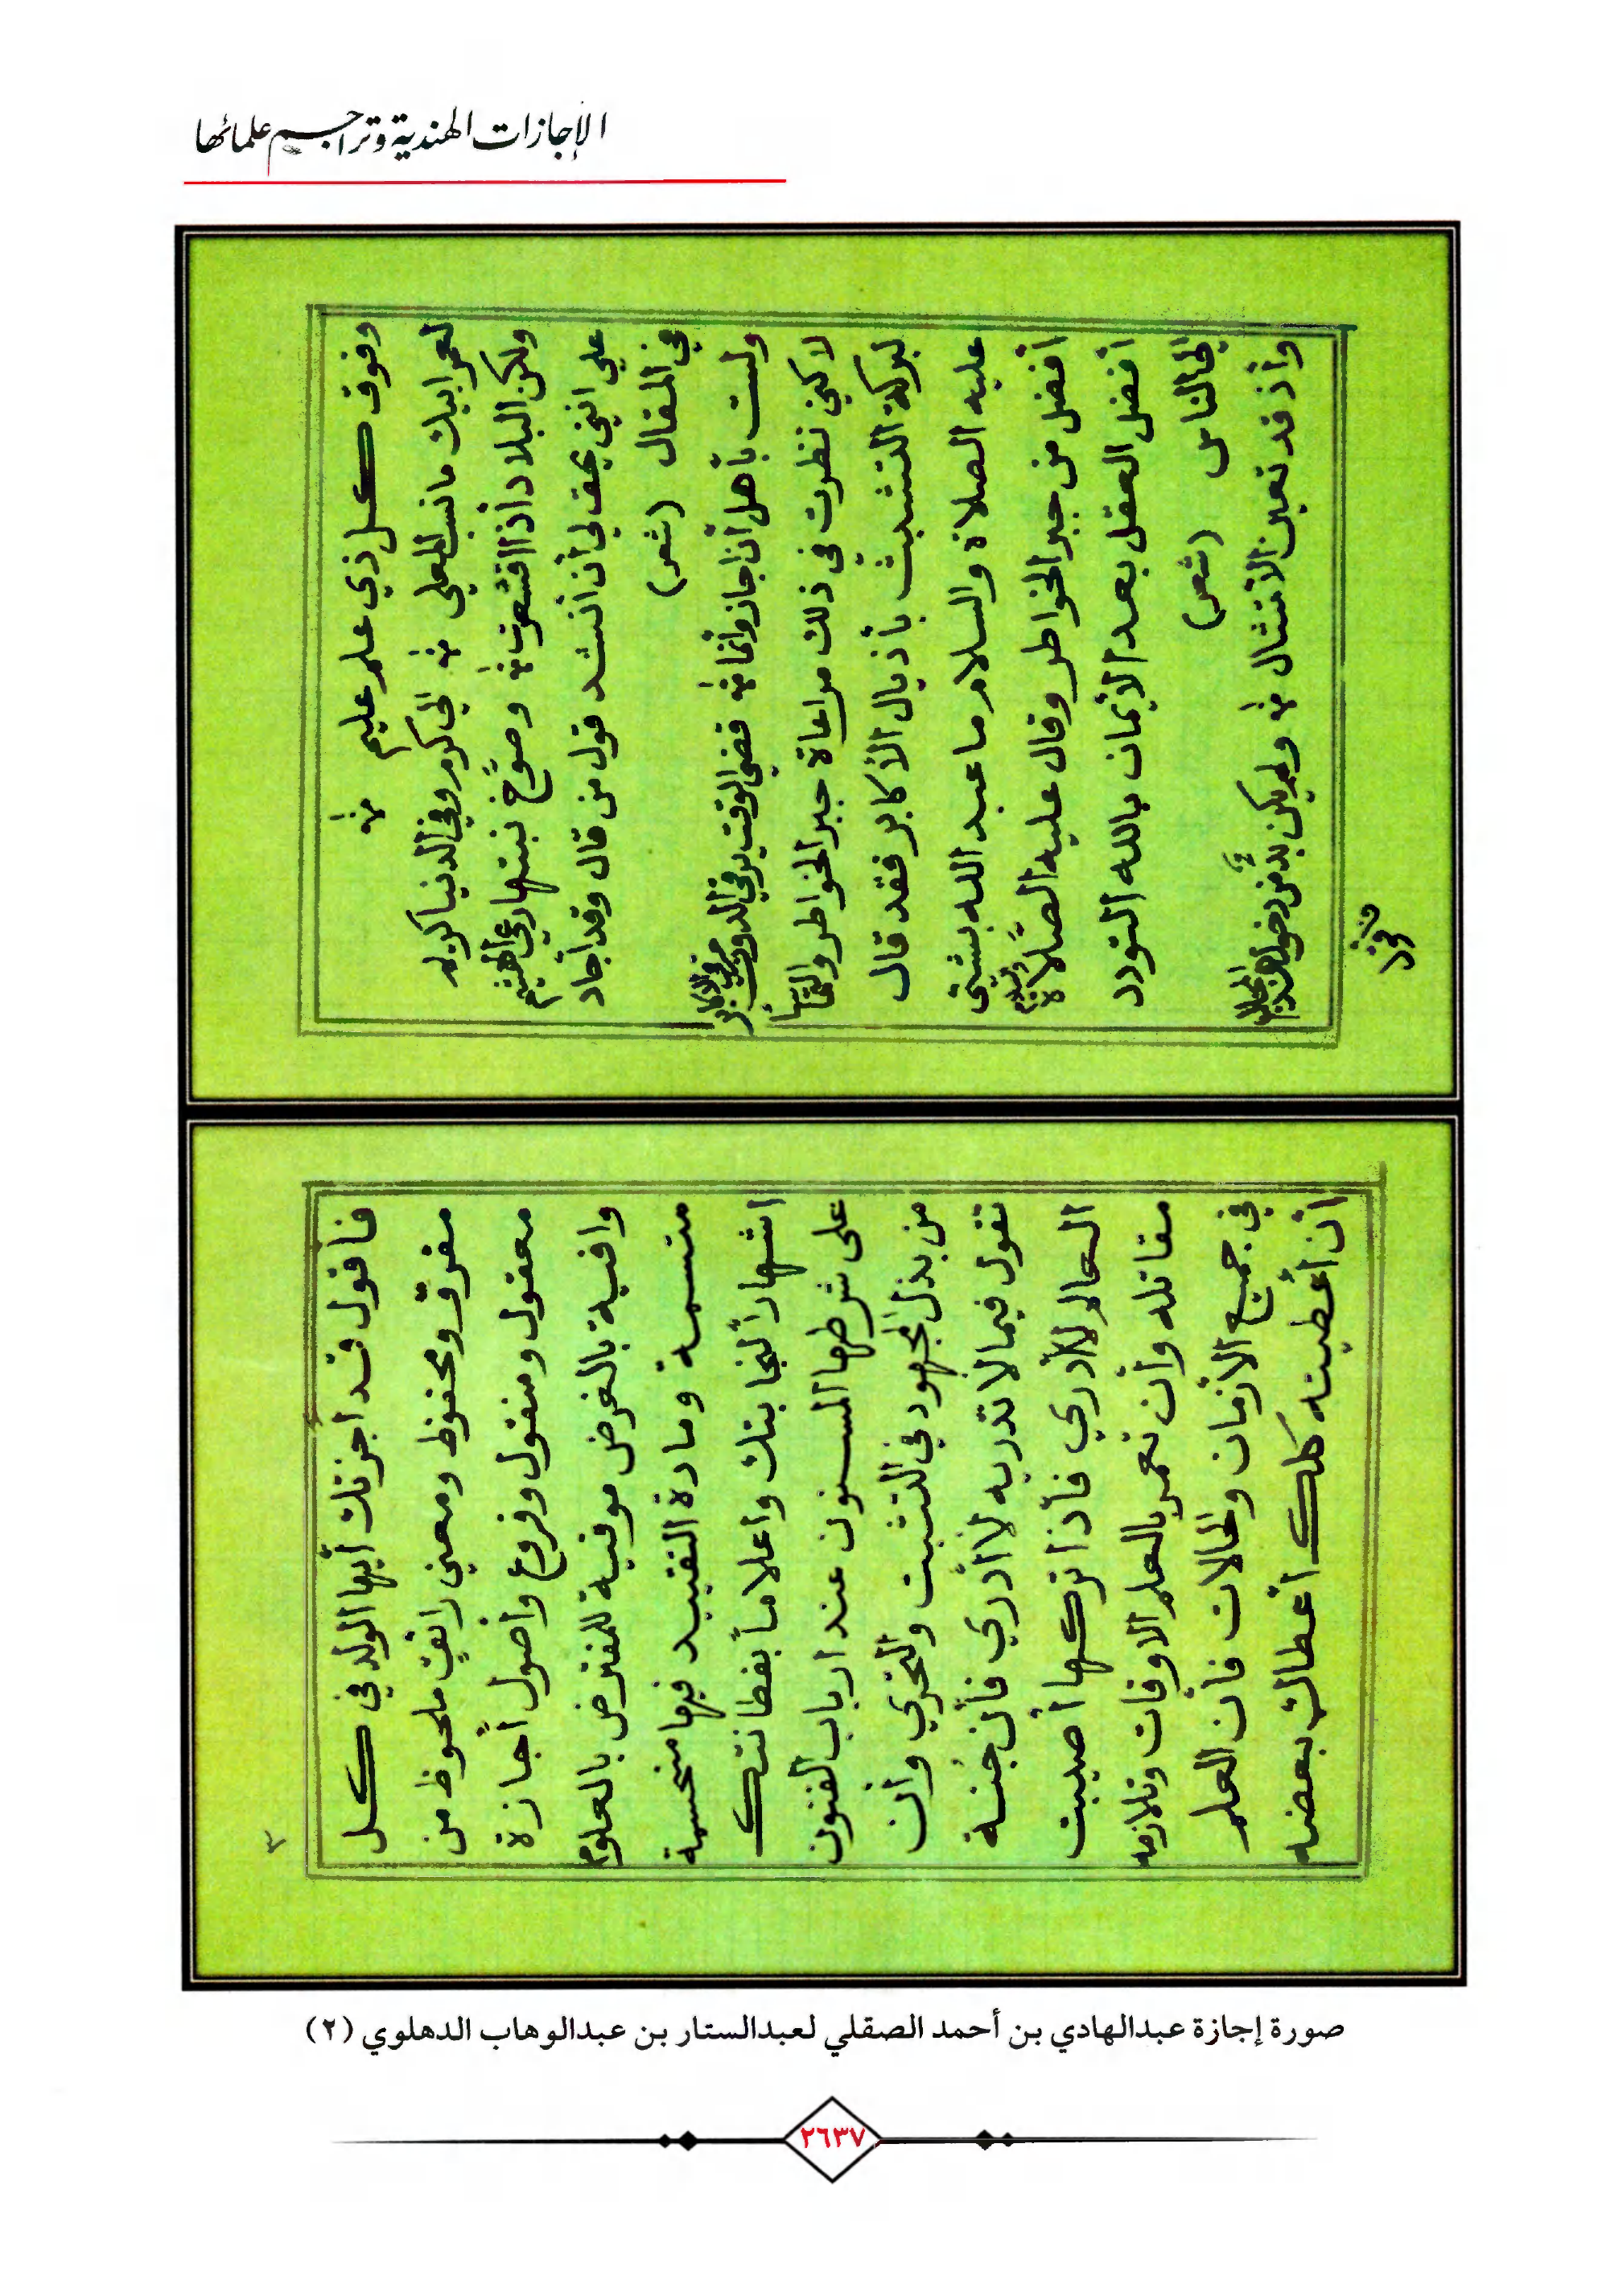 الإجازات الهندية وتراجم علمائها
وفوق كل ذي علم عليم
لعمر ابيك ما نسب المعلي الى كرم وفي الدنيا كريم
ولكن البلاد أذا اقشعرت وصوّح نبتها رعي الهشيم
علي انني يحق لي أن أنشد قول من قال وقد أجاد
في المقال (شعر)
ولست بأهل أن اجاز وأنما قضى الوقت برقي الدون
لاكني نظرت في ذلك مراعاة جبر الخواطر والتماسا
لبركة التشبث بأذيال الأكابر فقد قال
عليه الصلاة والسلام ما عبد الله بشئ
أفضل من جبر الخواطر وقال عليه الصّلاة والسلام
أفضل العقل بعد الأيمان بالله التودد
الى الناس (شعر)
وأذ قد تعين الأمتثال ولم يكن بدّ من
فأقول
فأقول قد أجزتك أيها الولد في كل
مفرق ومحفوظ ومعنى رائق ملحوظ من
معقول ومنقول وفروع وأصول أجازة
وافية بالغرض موفية للمفترض بالعلوم
متسمة ومادة التقييد فيها منحسمة
اشهاراً لنجابتك واعلاماً بفطانتك
على شرطها المسنون عند ارباب الفنون
من بذل المجهود في التثبت والتحري وأن
تقول فيما لا تدريه لا أدري فأن جُنة
العالم لا أدري فأذا تركها أصيبت
مقاتله وأن تعمر بالعلم الاوقات وتلازمه
في جميع الأزمان والحالات فأن العلم
أن أعطيته كلك أعطاك بعضه
٣
صورة إجازة عبدالهادي بن أحمد الصقلي لعبدالستار بن عبدالوهاب الدهلوي (٢)
٢٦٣٧